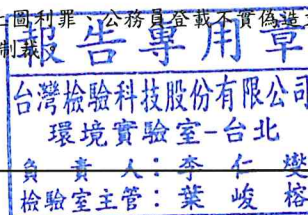 上圖利罪、公務員登載不實偽造
制裁。
報告專用章
台灣檢驗科技股份有限公司
環境實驗室-台北
負責人：李仁燮
檢驗室主管：葉峻榕